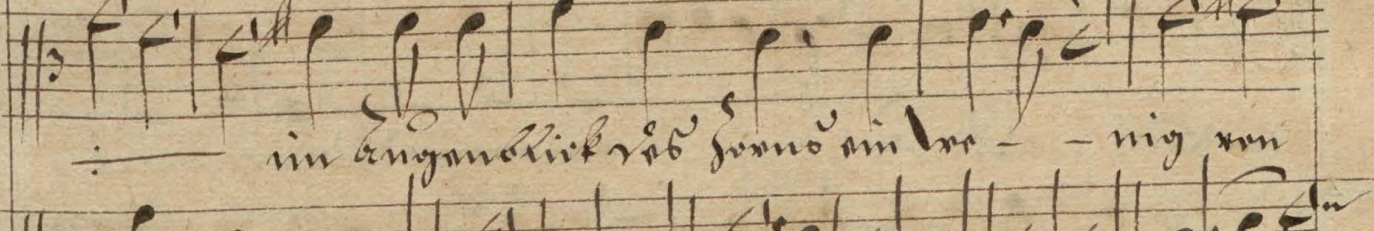 im Augenblick des Zorns ein we - - nig von